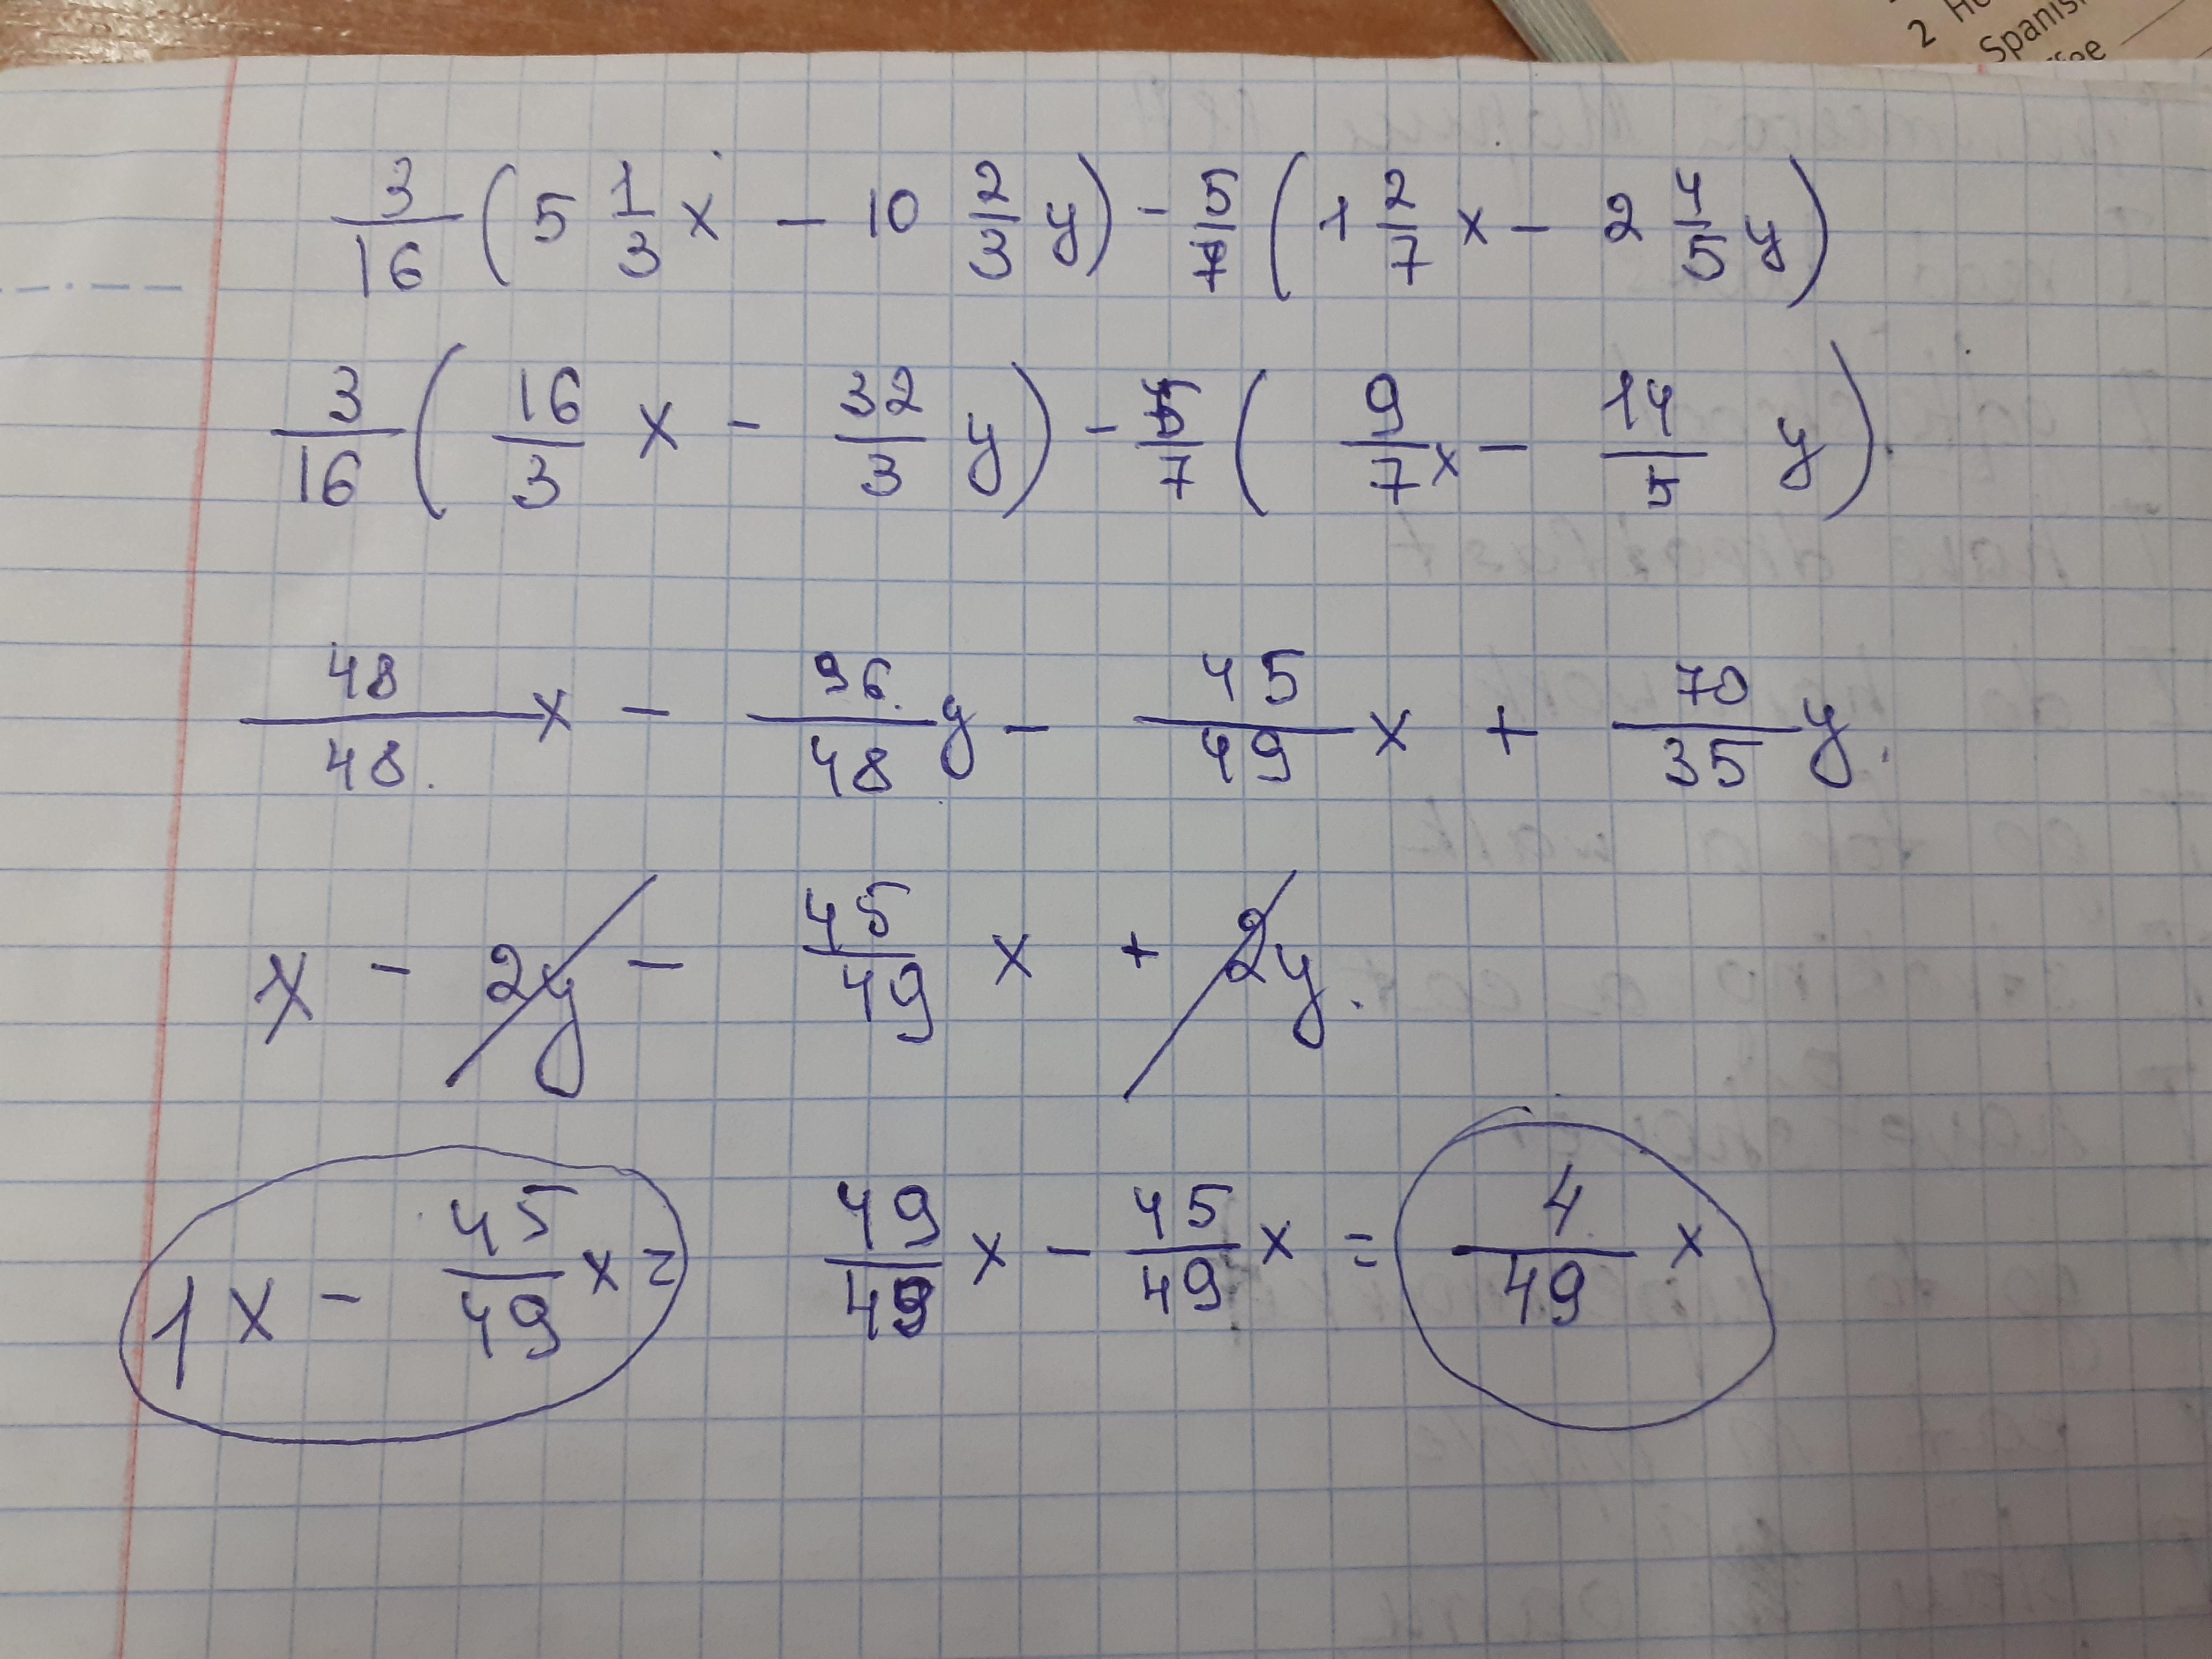 2 Ho
Spanis
ffee
3/16 (5 1/3 x - 10 2/3 y) - 5/7 (1 2/7 x - 2 4/5 y)
3/16 (16/3 x - 32/3 y) - 5/7 (9/7 x - 14/5 y).
48/48. x - 96./48 y - 45/49 x + 70/35 y.
x - 2y - 45/49 x + 2y.
1x - 45/49 x = 49/49 x - 45/49 x = 4/49 x